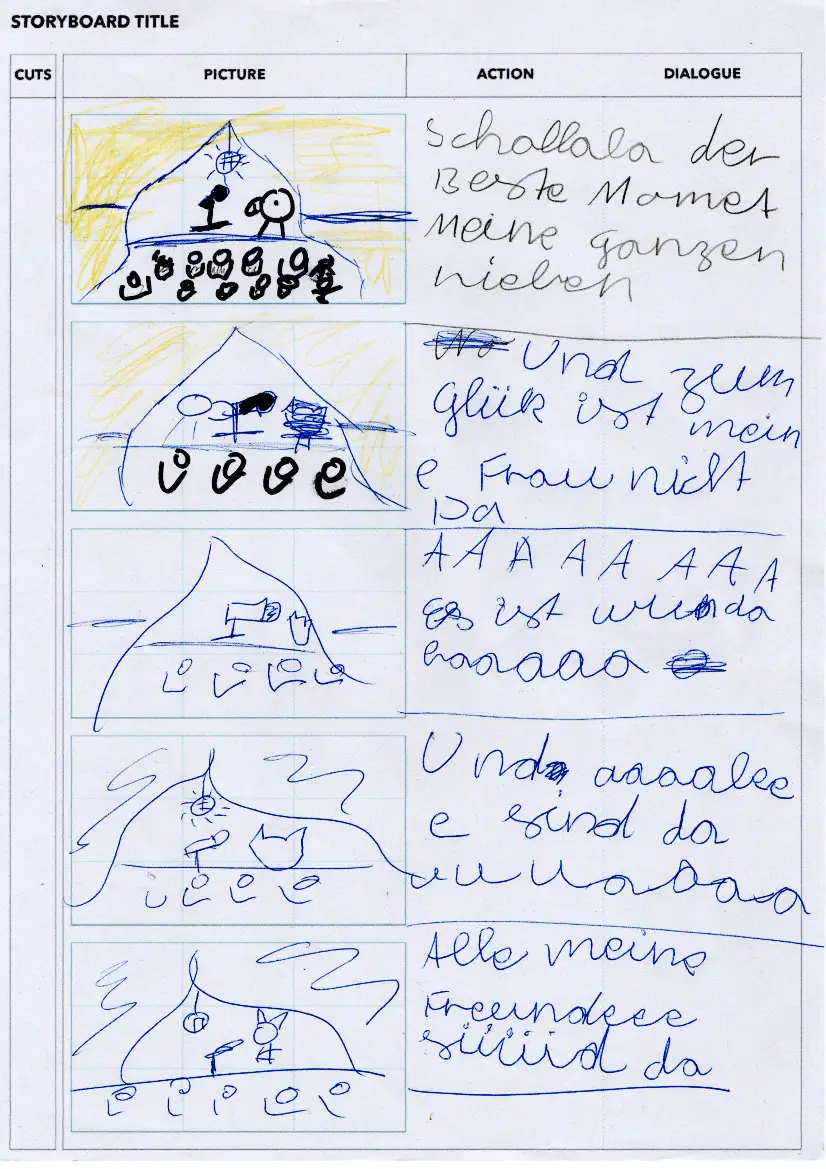 STORYBOARD TITLE
CUTS PICTURE ACTION DIALOGUE
Schallala der
Beste Mamet
Meine ganzen
nieben
Und zum
Glük ist mein
e Frau nicht
Da
A A A A A A A A
es ist wunda
baaaaaa
Und aaaalee
e sind da
uuuuaaaaa
Alle meine
Freundeee
süüüid da